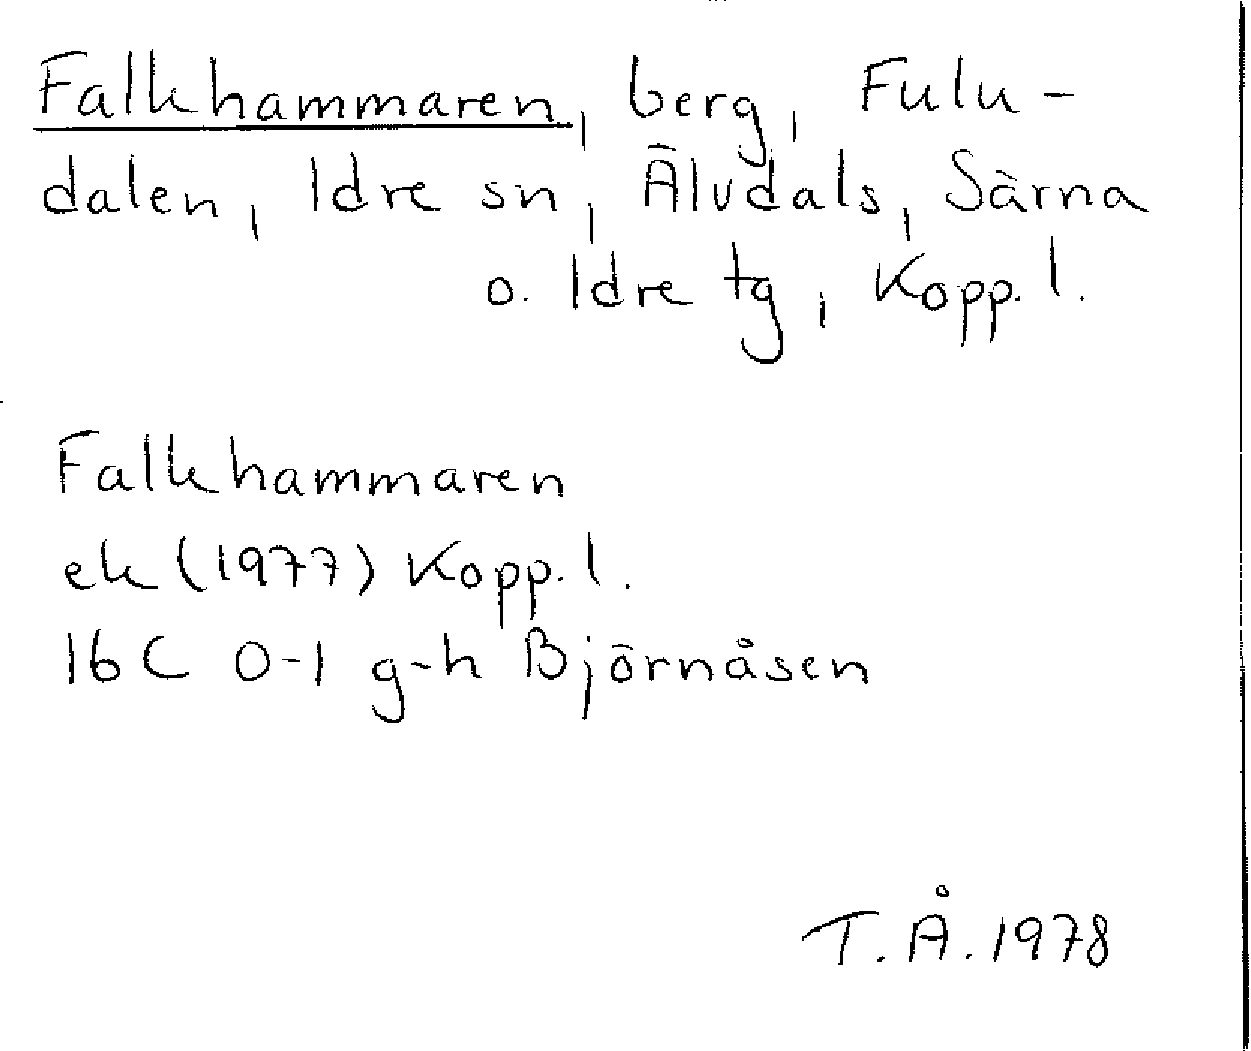 Falkhammaren, berg, Fulu-
dalen, Idre sn, Älvdals, Särna
o. Idre tg, Kopp. l.
Falkhammaren
ek (1977) Kopp. l.
16C 0-1 g-h Björnåsen
T. Å. 1978